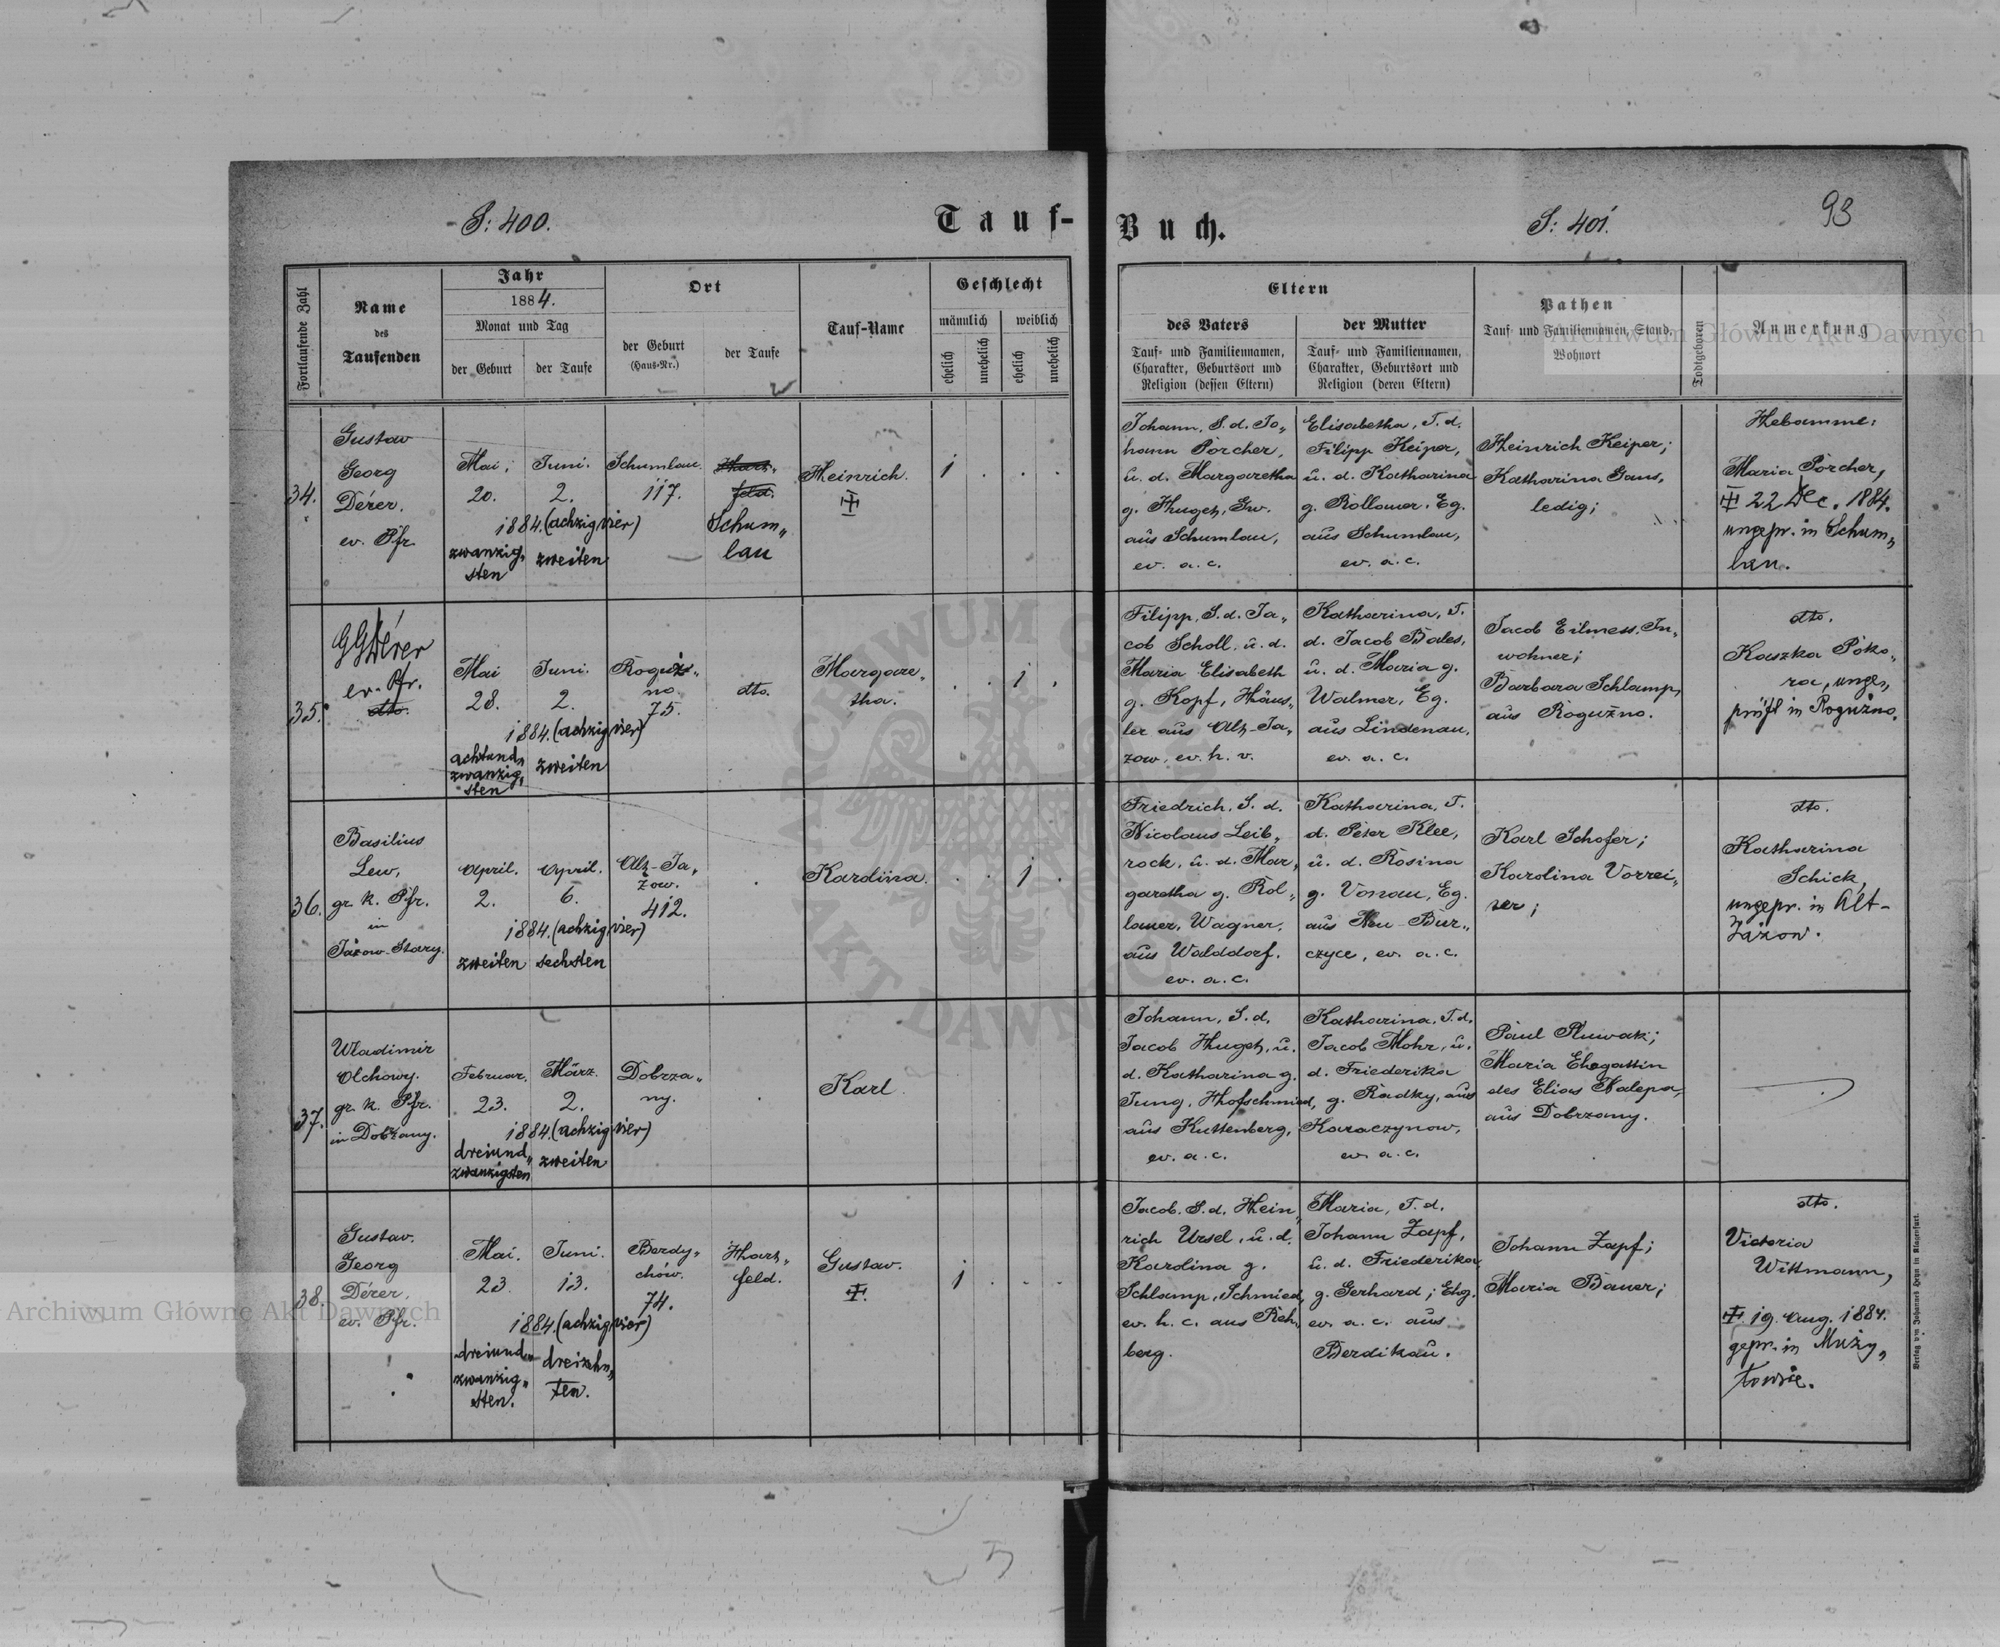 S: 400.
Tauf-
Buch.
S: 401.
93
Fortlaufende Zahl
Name
des
Taufenden
Jahr
1884.
Monat und Tag
der Geburt
der Taufe
Ort
der Geburt
(Haus-Nr.)
der Taufe
Tauf-Name
Geschlecht
männlich
weiblich
ehelich
unehelich
ehelich
unehelich
Eltern
des Vaters
Tauf- und Familiennamen,
Charakter, Geburtsort und
Religion (dessen Eltern)
der Mutter
Tauf- und Familiennamen,
Charakter, Geburtsort und
Religion (deren Eltern)
Pathen
Tauf- und Familiennamen, Stand,
Wohnort
Todtgeboren
Anmerkung
Archiwum Główne Akt Dawnych
34.
Gustav
Georg
Dérer.
ev. Pfr.
Mai,
20.
Juni.
2.
1884. (achzigvier)
zwanzig„
sten
zweiten
Schumlau.
117.
Hart„
feld.
Schum„
lau
Heinrich.
1 . . .
Johann, S. d. Jo„
hann Porcher,
u. d. Margaretha
g. Huget, Gw.
aus Schumlau,
ev. a. c.
Elisabetha, T. d.
Filipp Keiper,
u. d. Katharina
g. Rollauer, Eg.
aus Schumlau,
ev. a. c.
Heinrich Keiper;
Katharina Gans,
ledig;
Hebamme:
Maria Porcher,
22 Dec. 1884.
ungepr. in Schum„
lau.
35.
GGDérer
ev. Pfr.
dto.
Mai
28.
Juni.
2.
1884. (achzigvier)
achtund„
zwanzig„
sten
zweiten
Roguź„
no.
75.
dto.
Margare„
tha.
. . 1 .
Filipp, S. d. Ja„
cob Scholl, u. d.
Maria Elisabeth
g. Kopf, Häus„
ler aus Alt-Ja„
zow, ev. h. v.
Katharina, T.
d. Jacob Bales,
u. d. Maria g.
Walmer, Eg.
aus Lindenau,
ev. a. c.
Jacob Eilmess, In„
wohner;
Barbara Schlamp,
aus Roguźno.
dto.
Kaszka Poko„
ra, unge„
prüft in Roguźno.
36.
Basilius
Lew,
gr. k. Pfr.
in
Jażow-Stary.
April.
2.
April.
6.
1884. (achzigvier)
zweiten
sechsten
Alt-Ja„
zow.
412.
.
Karolina.
. . 1 .
Friedrich, S. d.
Nicolaus Leib„
rock, u. d. Mar„
garetha g. Rol„
lauer, Wagner,
aus Walddorf,
ev. a. c.
Katharina, T.
d. Peter Klee,
u. d. Rosina
g. Vonau, Eg.
aus Neu-Bur„
czyce, ev. a. c.
Karl Schofer;
Karolina Vorrei„
ter;
dto.
Katharina
Schick,
ungepr. in Alt-
Jażow.
37.
Wladimir
Olchowy.
gr. k. Pfr.
in Dobżany.
Februar.
23.
März.
2.
1884. (achzigvier)
dreiund„
zwanzigsten
zweiten
Dobrza„
ny.
.
Karl
Johann, S. d.
Jacob Huget, u.
d. Katharina g.
Jung, Hofschmied,
aus Kuttenberg,
ev. a. c.
Katharina, T. d.
Jacob Mohr, u.
d. Friederika
g. Radky, aus
Karaczynow,
ev. a. c.
Paul Pluwak;
Maria Ehegattin
des Elias Kalepa,
aus Dobrzany.
38.
Gustav.
Georg
Dérer.
ev. Pfr.
Mai.
23
Juni.
13.
1884. (achzigvier)
dreiund„
zwanzig„
sten.
dreizehn„
ten.
Berdy„
chów.
74.
Hart„
feld.
Gustav.
1 . . .
Jacob. S. d. Hein„
rich Ursel, u. d.
Karolina g.
Schlamp, Schmied,
ev. h. c. aus Reh„
berg.
Maria, T. d.
Johann Zapf,
u. d. Friederika
g. Gerhard; Ehg.
ev. a. c. aus
Berdikau.
Johann Zapf;
Maria Bauer;
dto.
Victoria
Wittmann,
19. Aug. 1884.
gepr. in Muży„
łowie.
Verlag von Johannes Heyn in Klagenfurt.
Archiwum Główne Akt Dawnych
ARCHIWUM GŁÓWNE AKT DAWNYCH